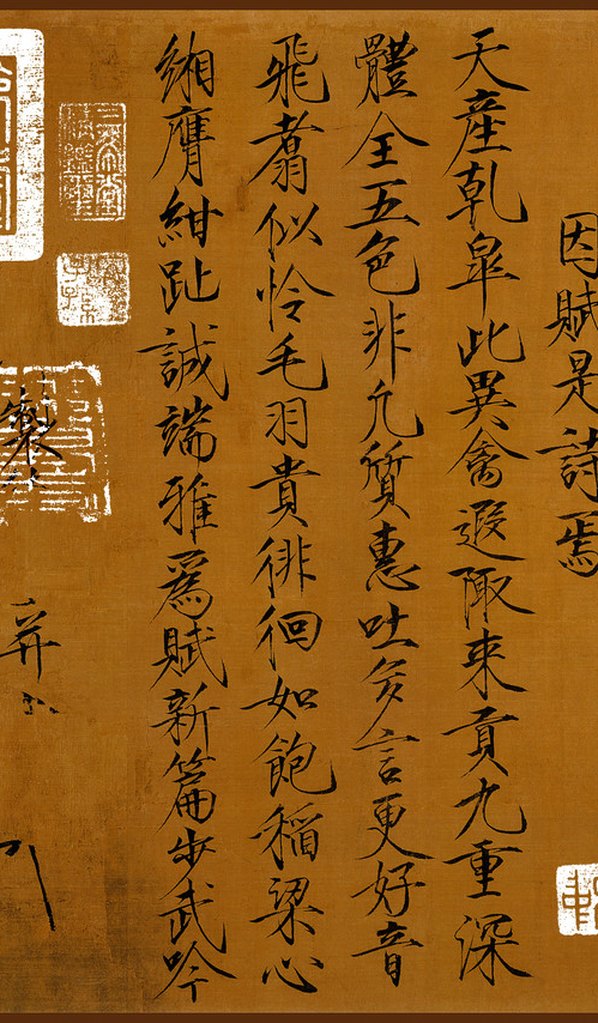 因賦是詩焉
天產乾皐此異禽遐陬來貢九重深
體全五色非凡質惠吐多言更好音
飛翥似怜毛羽貴徘徊如飽稻梁心
緗膺紺趾誠端雅爲賦新篇步武吟
製
并